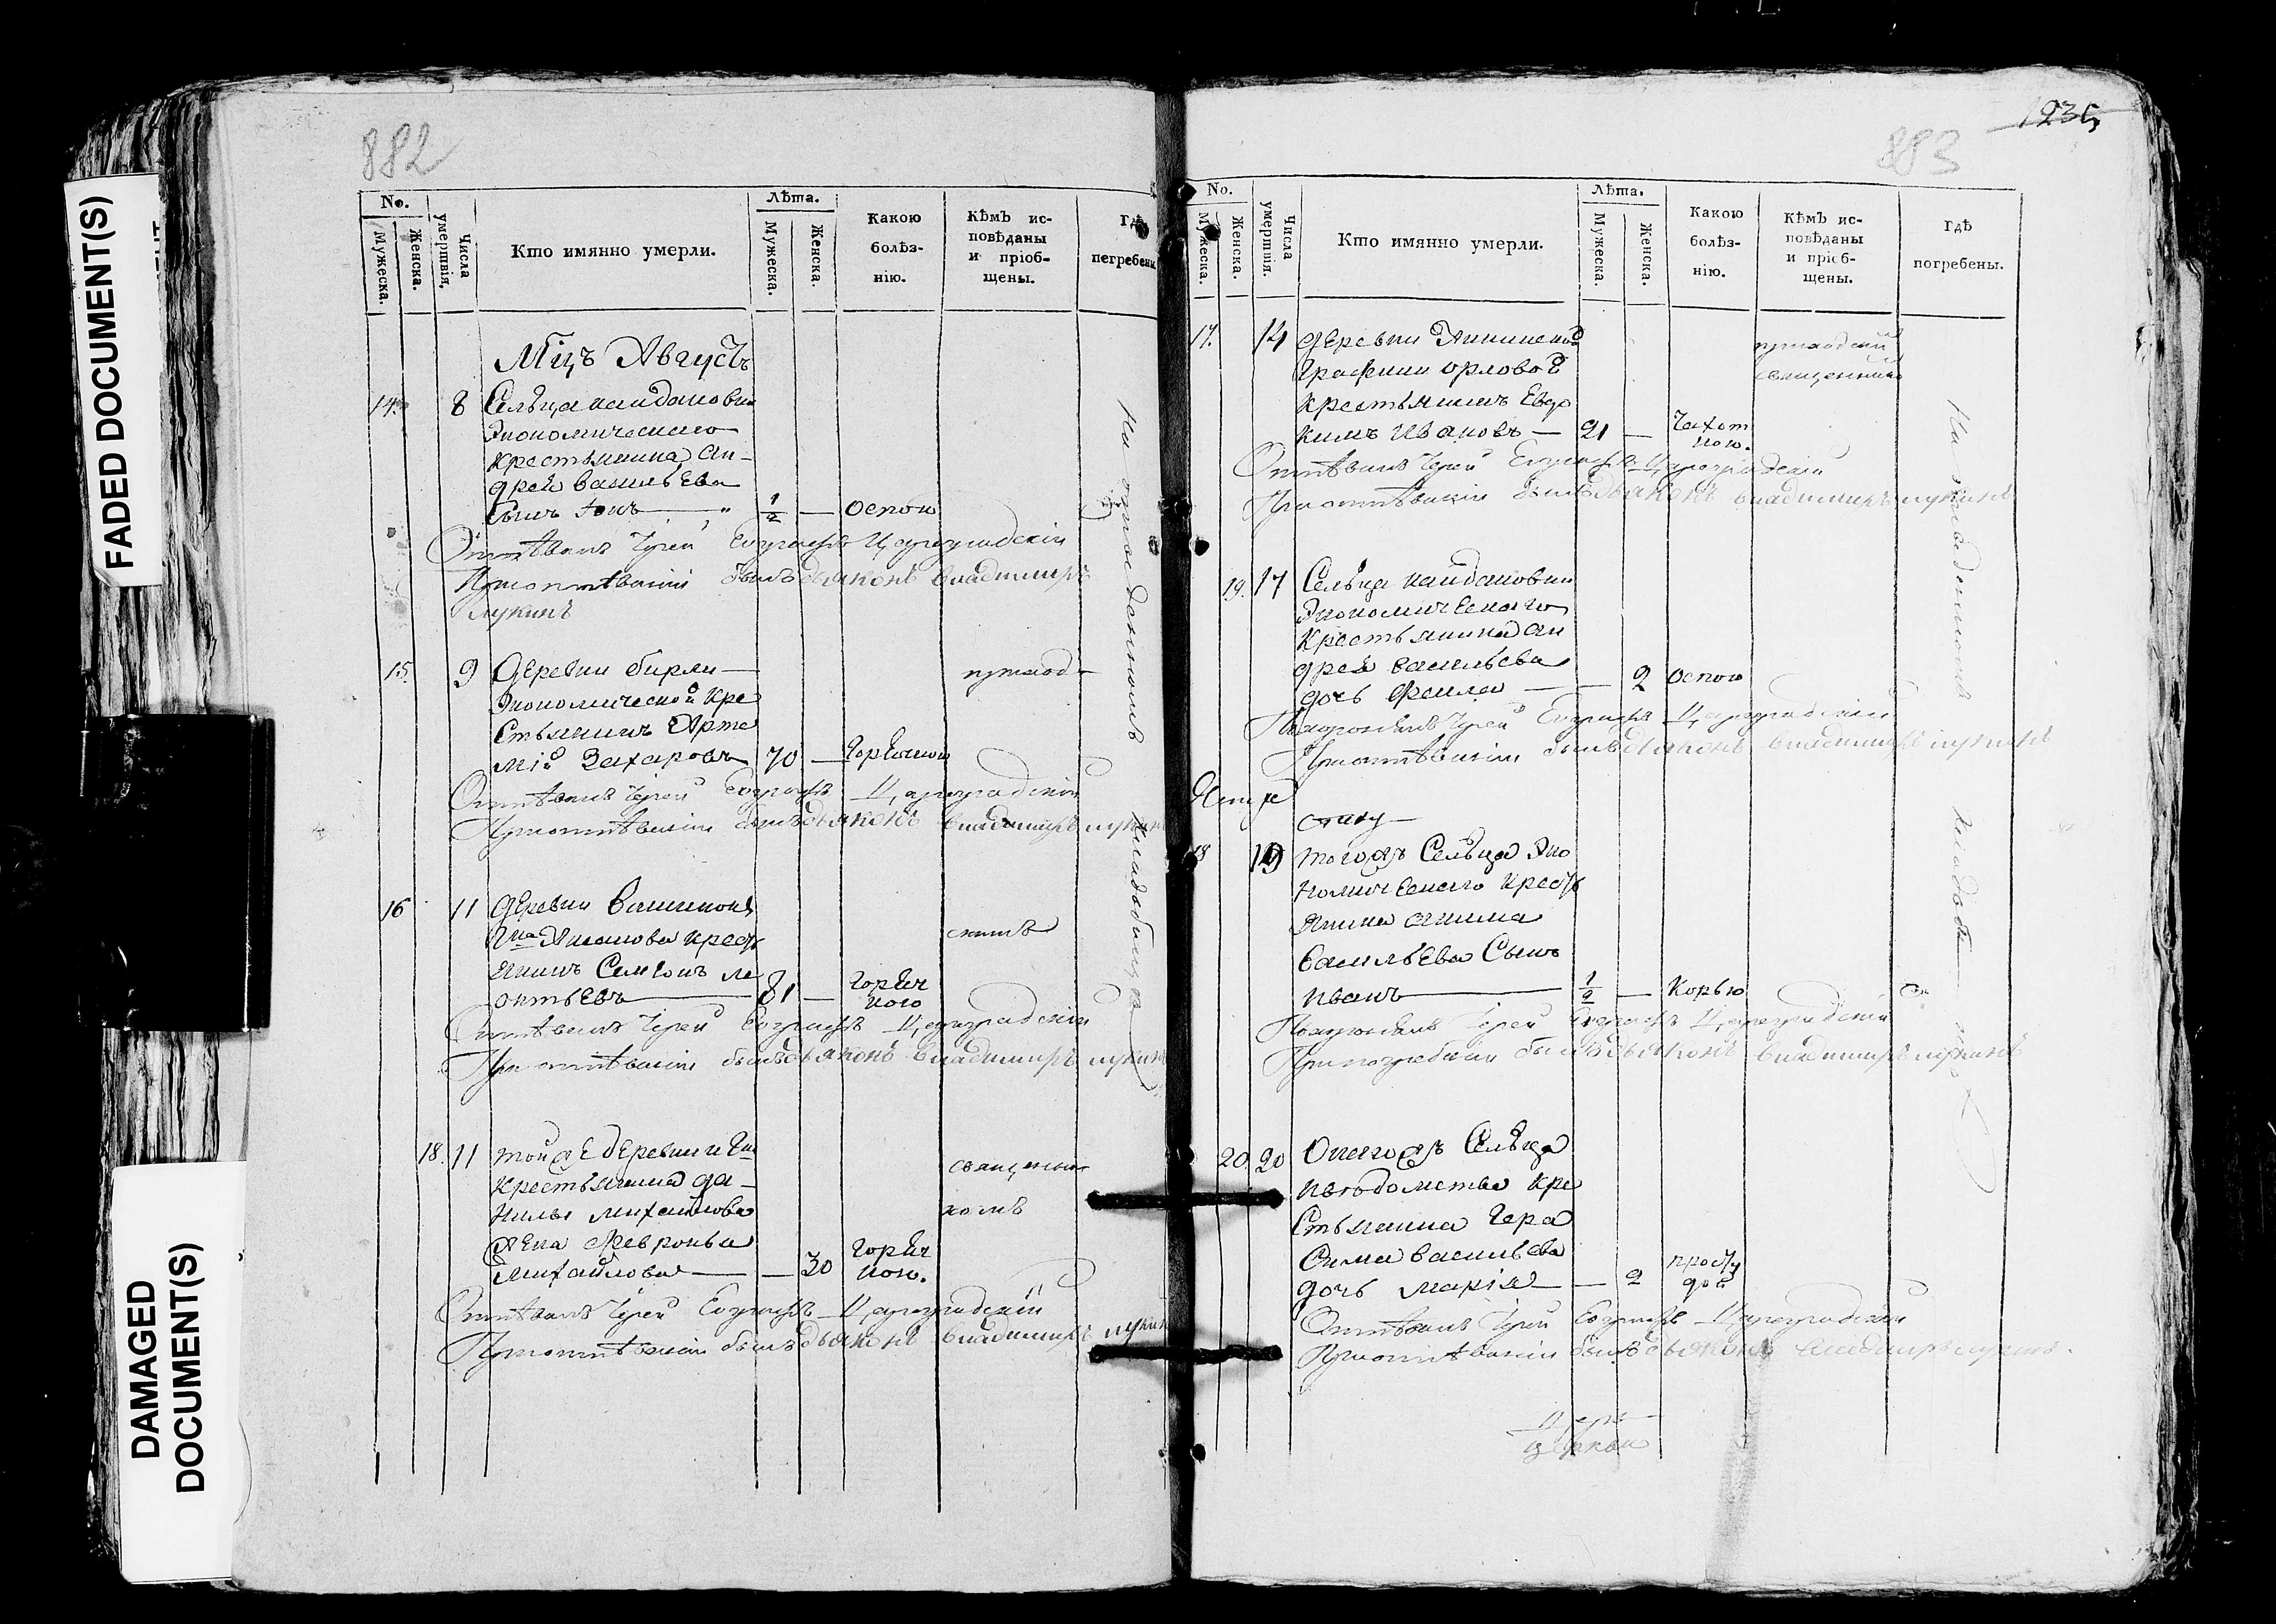 FADED DOCUMENT(S)
DAMAGED
DOCUMENT(S)
882
No.
Мужеска.
Женска.
Числа
умертвія.
Кто имянно умерли.
Лѣта.
Мужеска.
Женска.
Какою
болѣз-
нію.
Кѣмъ ис-
повѣданы
и пріоб-
щены.
Гдѣ
погребены.
Мцъ Августъ
14. 8 Сельца
Экономическаго
крестьянина Ан-
дрея Васильева
сынъ Іонъ 1/2 — оспою
Отпѣвалъ Іерей Евграфъ Цареградскій
При отпѣваніи былъ дьяконъ Владимиръ
Лукинъ
15. 9 Деревни Бирли—
экономической кре
стьянинъ Арте
мій Захаровъ 70 — горячкою
приход-
Отпѣвалъ Іерей Евграфъ Цареградскій
При отпѣваніи былъ дьяконъ Владимиръ Лукинъ
16 11 Деревни
крест
янинъ Семіонъ Ле
онтьевъ 81 — горяч
кою
скимъ
Отпѣвалъ Іерей Евграфъ Цареградскій
При отпѣваніи былъ дьяконъ Владимиръ Лукинъ
18. 11 той же деревни и Гна
крестьянина Да-
нилы Михайлова
жена Февронья
Михайлова — 30 горяч
кою.
священни
комъ
Отпѣвалъ Іерей Евграфъ Цареградскій
При отпѣваніи былъ дьяконъ Владимиръ Лукинъ
На отведенномъ кладбищѣ
1235
883
No.
Мужеска.
Женска.
Числа
умертвія.
Кто имянно умерли.
Лѣта.
Мужеска.
Женска.
Какою
болѣз-
нію.
Кѣмъ ис-
повѣданы
и пріоб-
щены.
Гдѣ
погребены.
17. 14 Деревни Аннинской
Графини Орловой
крестьянинъ Евдо
кимъ Ивановъ — 21 — Чахот
кою.
приходскимъ
священникомъ
Отпѣвалъ Іерей Евграфъ Цареградскій
При отпѣваніи былъ дьяконъ Владимиръ Лукинъ
19. 17 Сельца
Экономическаго
крестьянина Ан
дрея Васильева
дочь — — 2 оспою
Похоронялъ Іерей Евграфъ Цареградскій
При отпѣваніи былъ дьяконъ Владимиръ Лукинъ
18 19 того жъ Сельца Эко
номическаго крест
янина Акима
Васильева сынъ
Иванъ 1/2 — Корью
Похоронялъ Іерей Евграфъ Цареградскій
При погребеніи былъ дьяконъ Владимиръ Лукинъ
20 20 Онагожъ Сельца
и вѣдомства кре
стьянина Гера
сима Васильева
дочь Марія — — 2 просту
дой
Отпѣвалъ Іерей Евграфъ Цареградскій
При отпѣваніи былъ дьяконъ Владимиръ Лукинъ.
На отведенномъ
церкви